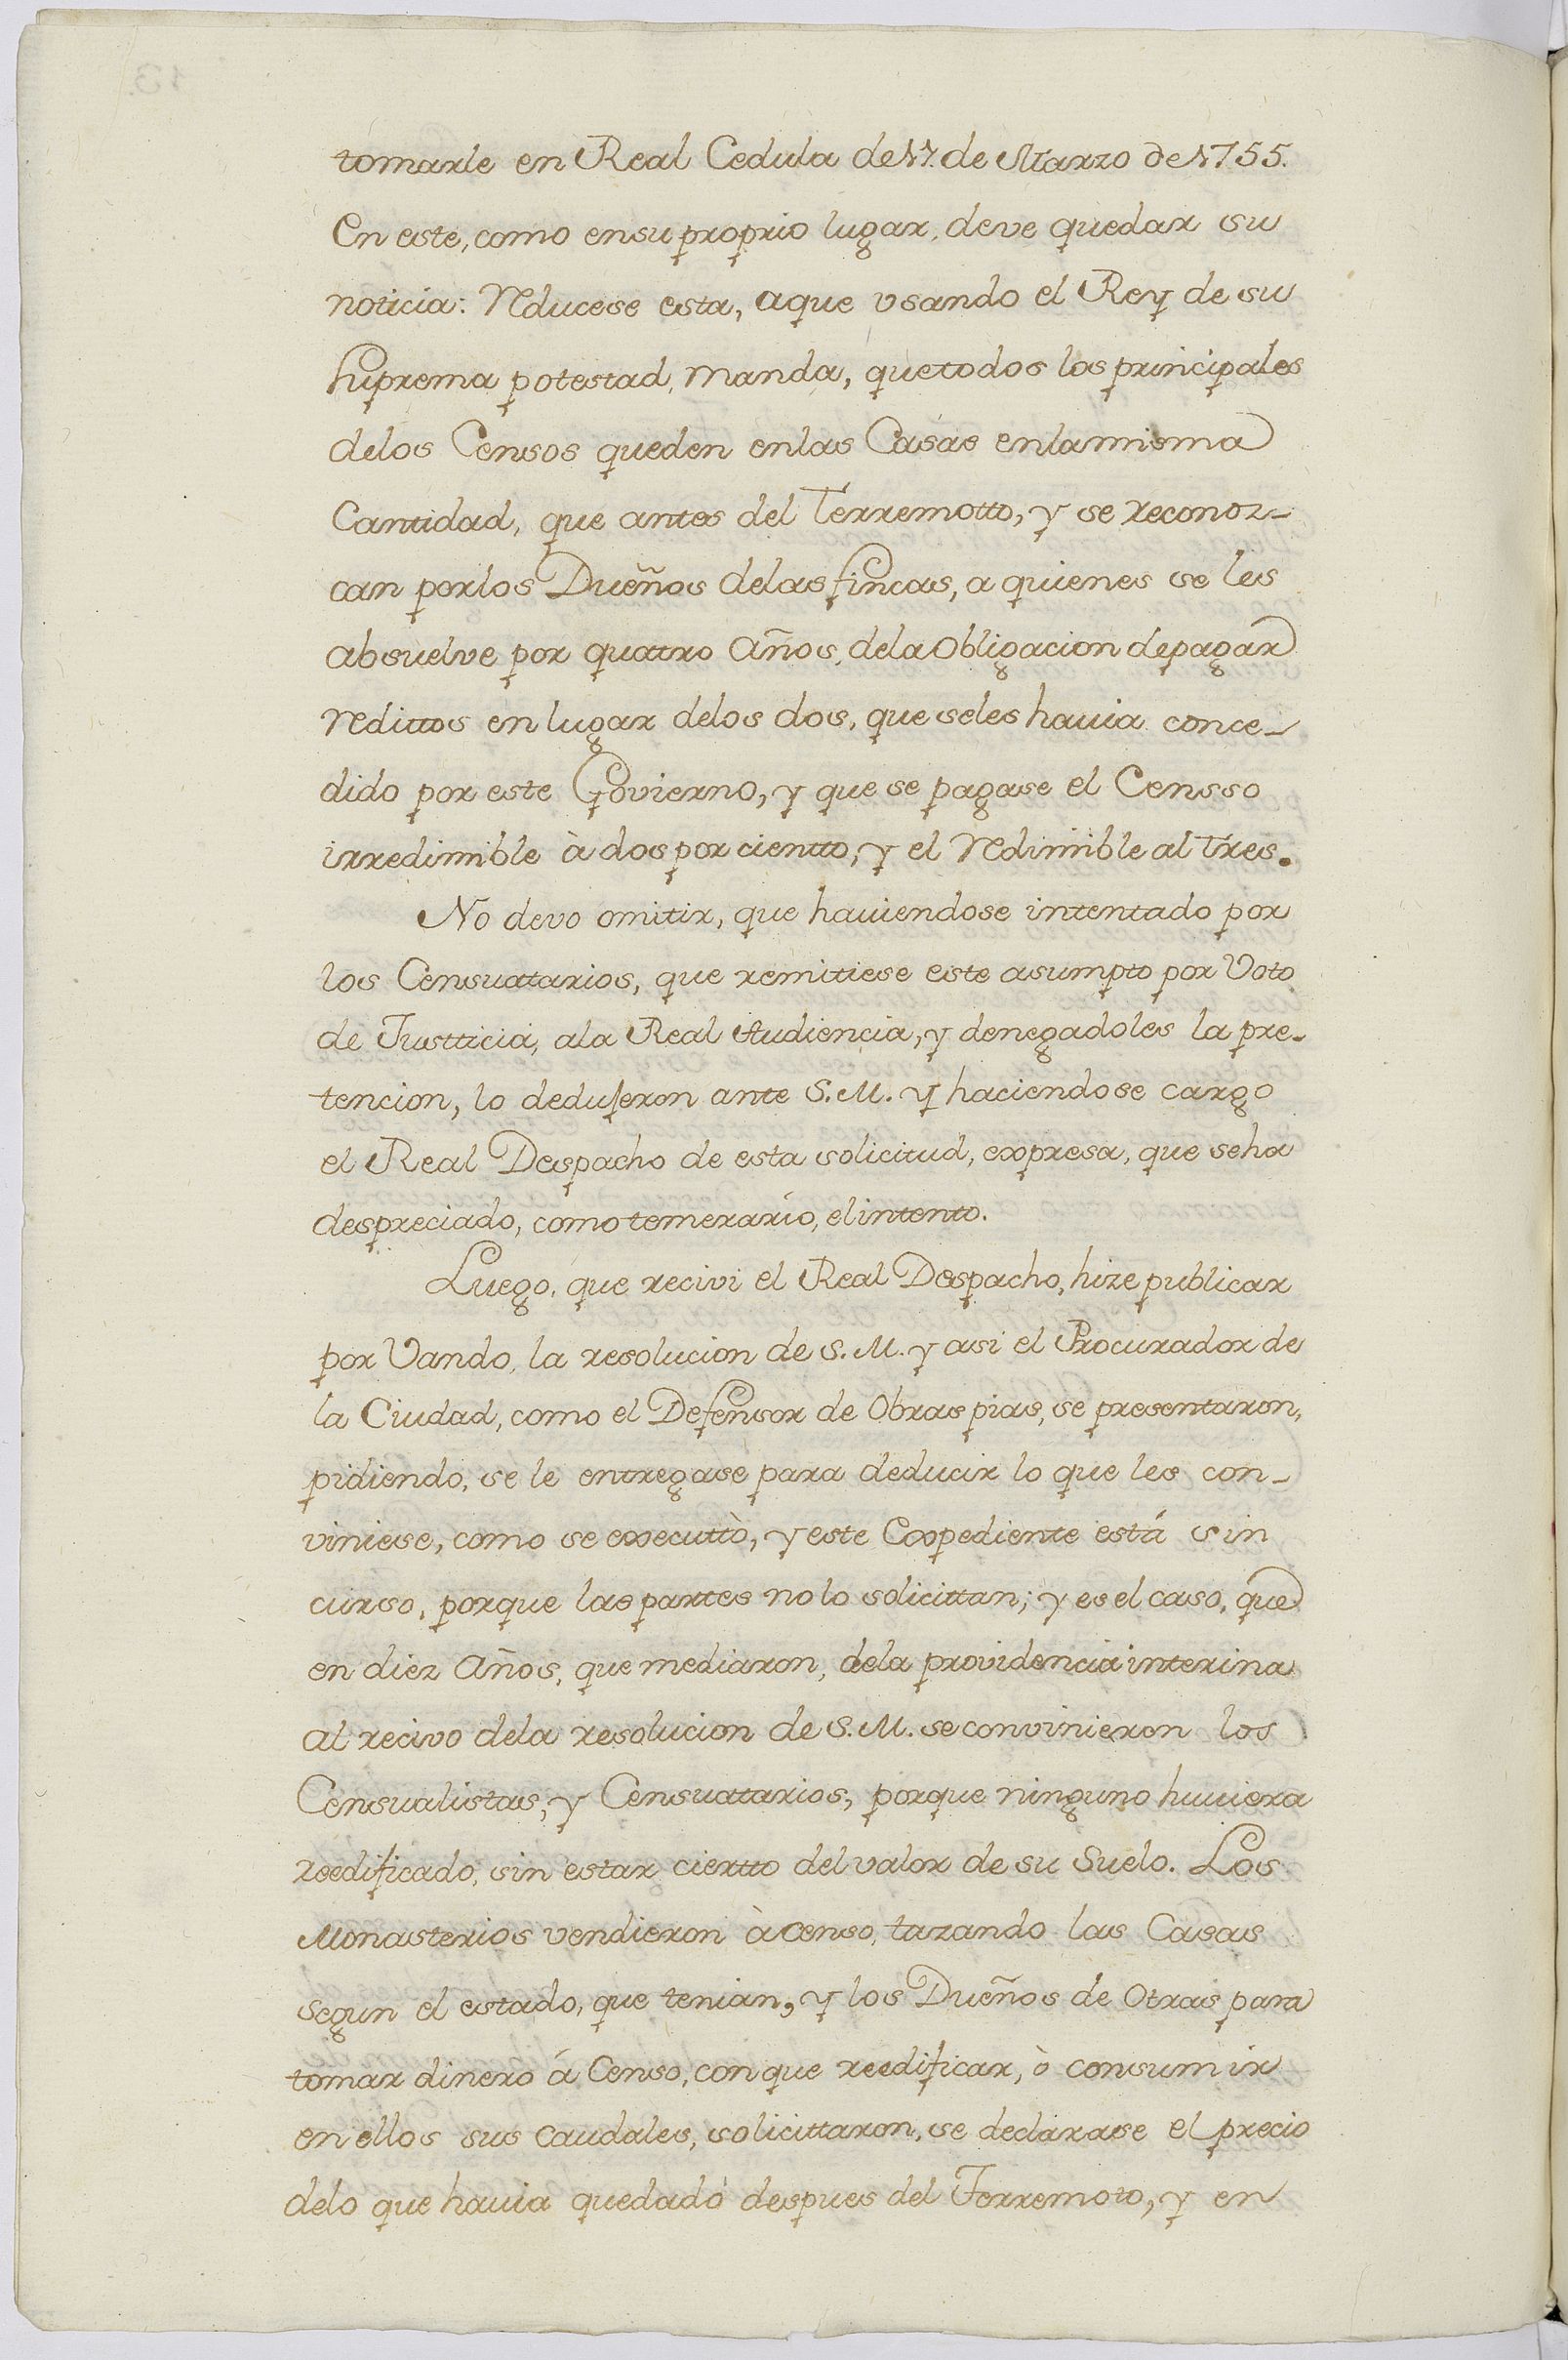 tomarle en Real Cedula de 17. de Marzo de 1755.
En este, como ensu proprio lugar, deve quedar su
noticia: Reducese esta, aque usando el Rey de su
suprema potestad, manda, quetodos los principales
delos Censos queden enlas Casas enlamisma
Cantidad, que antes del Terremotto, y se reconoz-
can porlos Dueños delas fincas, a quienes se les
absuelve por quatro Años, dela Obligacion depagar
Redittos en lugar delos dos, que seles hauia conce-
dido por este Govierno, y que se pagase el Censso
irredimible à dos por cientto, y el Redimible al Tres.
No devo omitir, que hauiendose intentado por
los Censuatarios, que remitiese este asumpto por Voto
de Justticia, ala Real Audiencia, y denegadoles la pre-
tencion, lo dedujeron ante S.M. y haciendose cargo
el Real Despacho de esta solicitud, expresa, que seha
despreciado, como temerario, elintento.
Luego, que recivi el Real Despacho, hize publicar
por Vando, la resolucion de S.M. y asi el Procurador de
la Ciudad, como el Defensor de Obras pias, se presentaron,
pidiendo, se le entregase para deducir lo que les con-
viniese, como se executtò, y este Expediente está sin
curso, porque las partes no lo solicittan; y es el caso, que
en diez Años, que mediaron, dela providencia interina
al recivo dela resolucion de S.M. se convinieron los
Censualistas, y Censuatarios, porque ninguno huuiera
reedificado, sin estar ciertto del valor de su Suelo. Los
Monasterios vendieron à censo, tazando las Casas
segun el estado, que tenian, y los Dueños de Otras para
tomar dinero á Censo, con que reedificar, ò consumir
en ellos sus caudales, solicittaron, se declarase el precio
delo que hauia quedado despues del Terremoto, y en